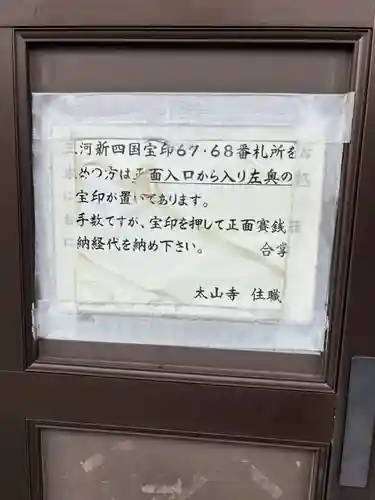 三河新四国宝印67・68番札所を
めつ方は正面入口から入り左奥の
宝印が置いてあります。
手数ですが、宝印を押して正面賽銭
納経代を納め下さい。　合掌
太山寺　住職